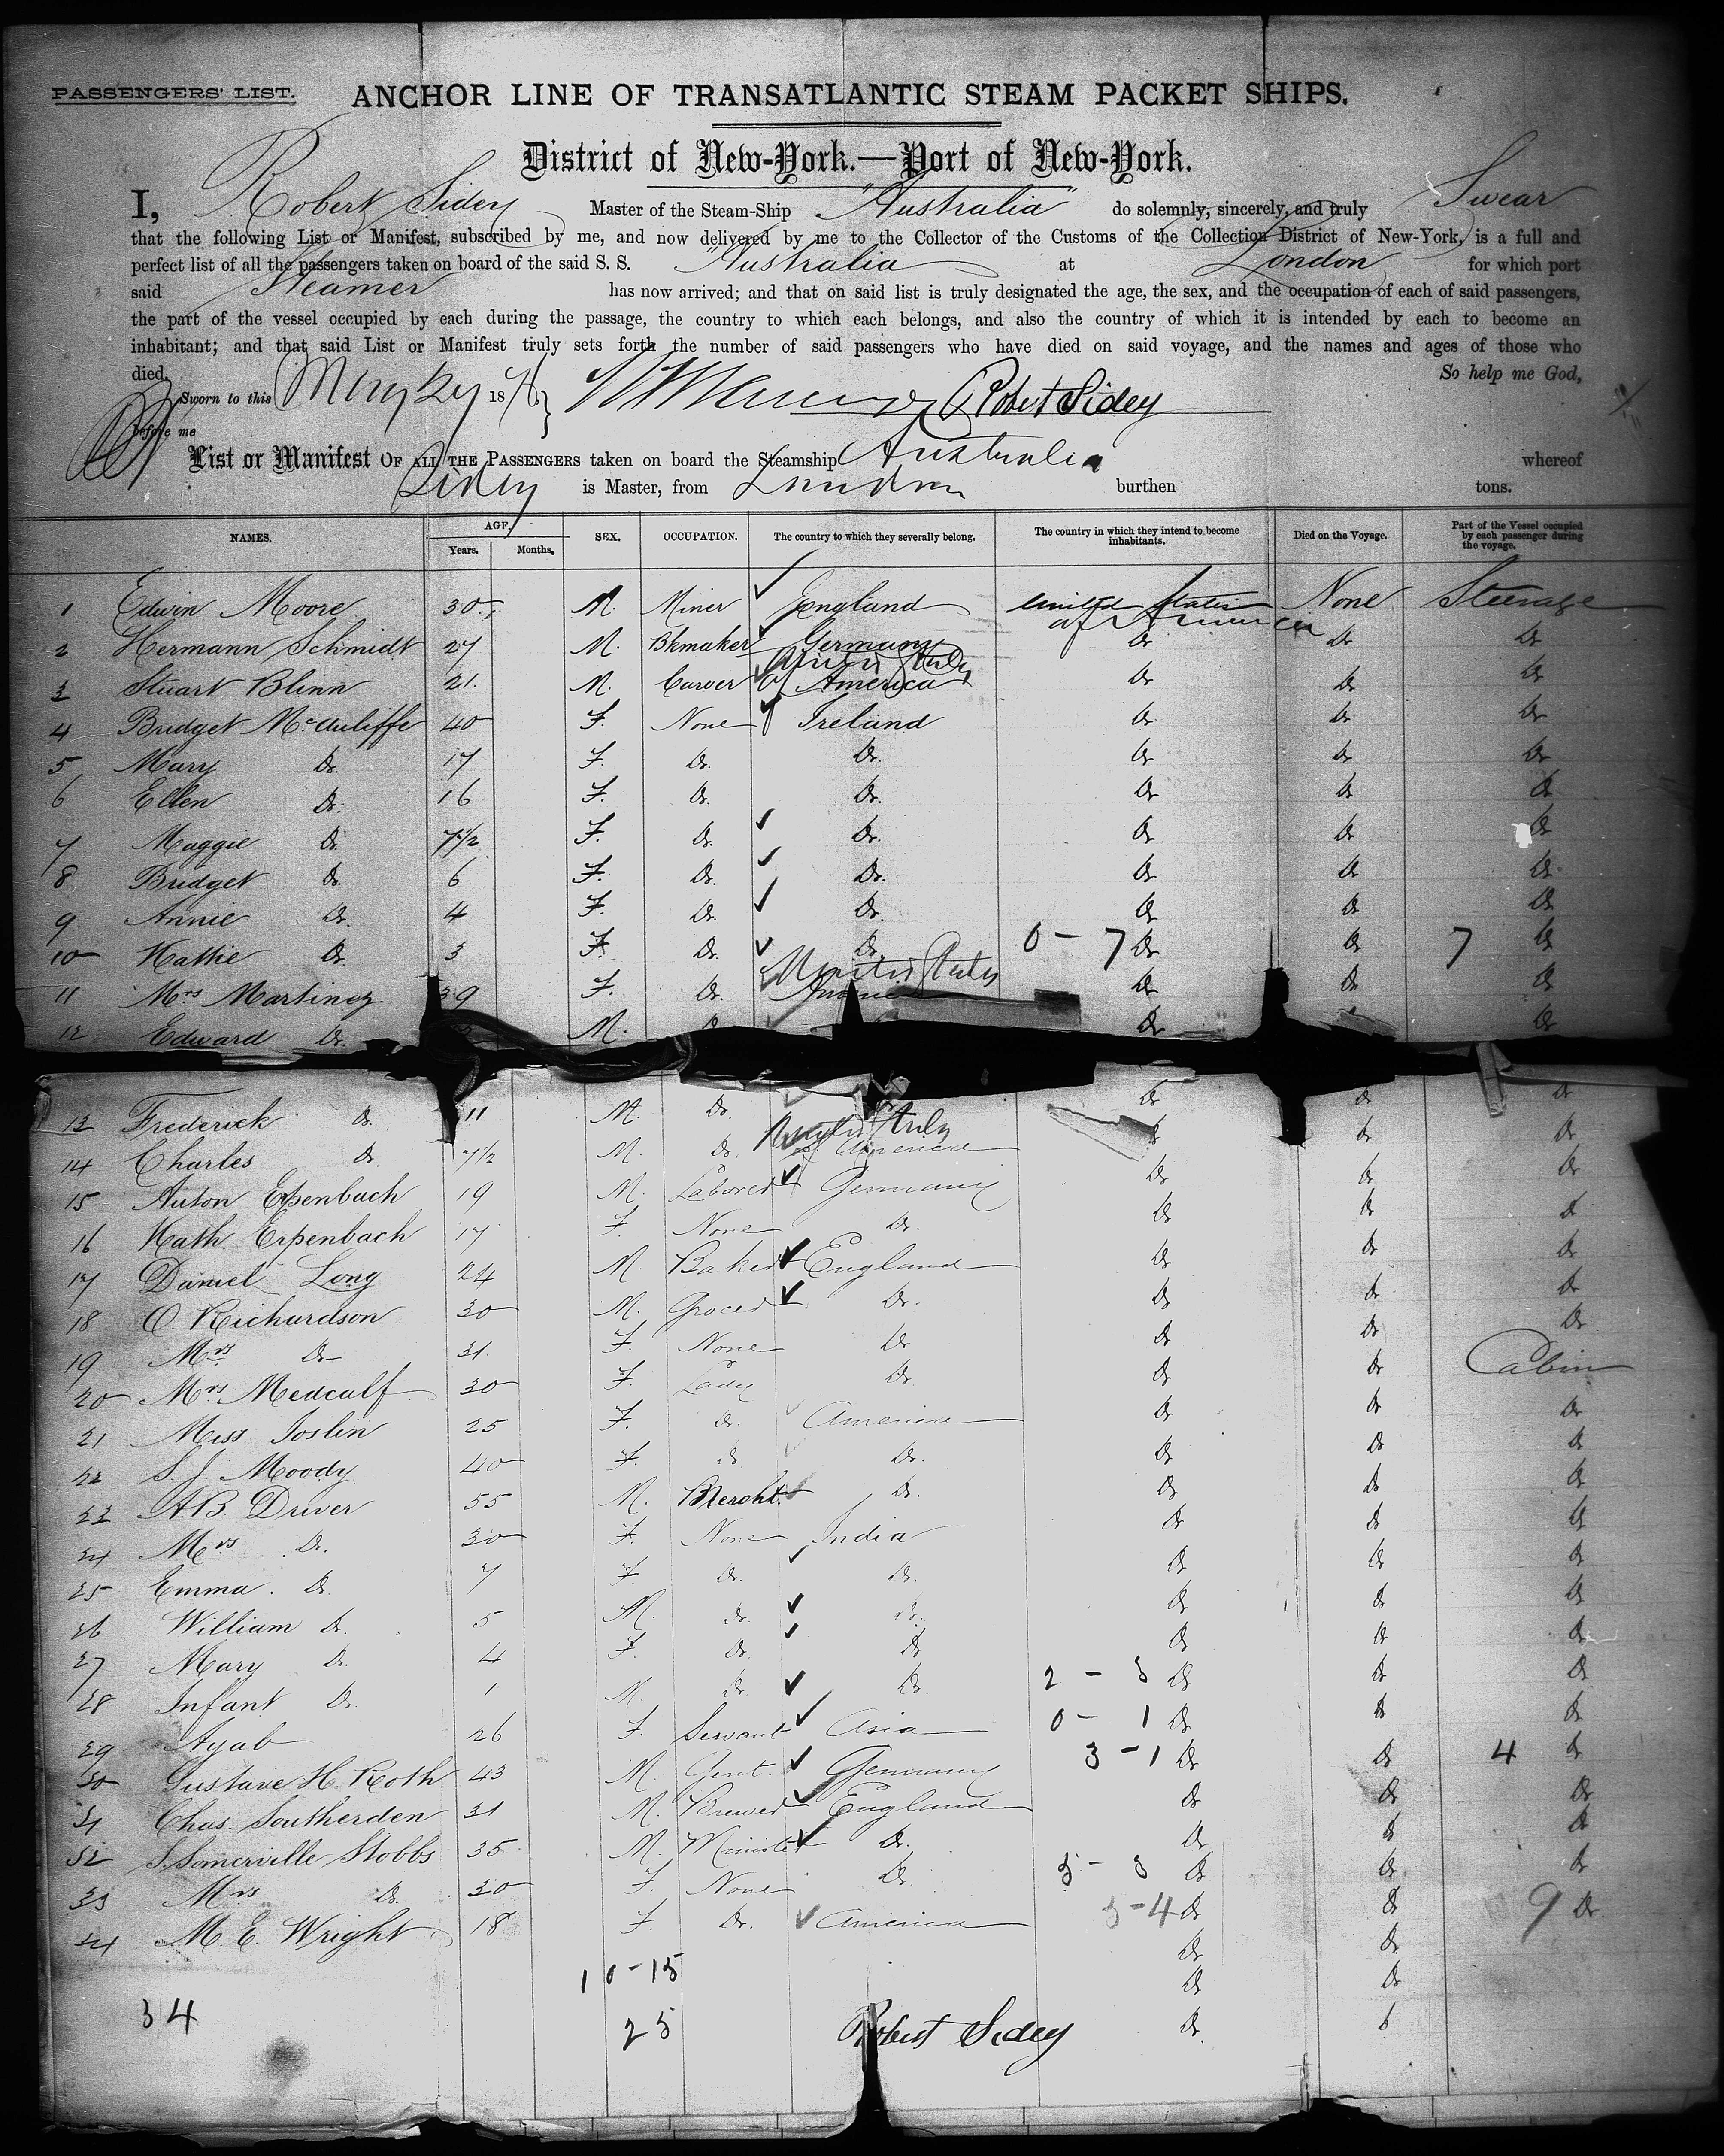 PASSENGERS' LIST.
ANCHOR LINE OF TRANSATLANTIC STEAM PACKET SHIPS.
District of New-York.—Port of New-York.
I, Robert Sidey Master of the Steam-Ship "Australia" do solemnly, sincerely, and truly Swear
that the following List or Manifest, subscribed by me, and now delivered by me to the Collector of the Customs of the Collection District of New-York, is a full and
perfect list of all the passengers taken on board of the said S. S. "Australia at London for which port
said Steamer has now arrived; and that on said list is truly designated the age, the sex, and the occupation of each of said passengers,
the part of the vessel occupied by each during the passage, the country to which each belongs, and also the country of which it is intended by each to become an
inhabitant; and that said List or Manifest truly sets forth the number of said passengers who have died on said voyage, and the names and ages of those who
died. So help me God,
Sworn to this May 1876 Robert Sidey
before me
List or Manifest OF ALL THE PASSENGERS taken on board the Steamship Australia whereof
Sidey is Master, from London burthen tons.
NAMES. AGE. Years. Months. SEX. OCCUPATION. The country to which they severally belong. The country in which they intend to become inhabitants. Died on the Voyage. Part of the Vessel occupied by each passenger during the voyage.
1 Edwin Moore 30 M. Miner England United States of America None Steerage
2 Hermann Schmidt 27 M. Bkmaker Germany Do Do Do
3 Stuart Blinn 21. M. Carver United States of America Do Do Do
4 Bridget McAuliffe 40 F. None Ireland Do Do Do
5 Mary Do. 17 F. Do. Do. Do Do Do
6 Ellen Do. 16 F. Do. Do. Do Do Do
7 Maggie Do 7½ F. Do. Do. Do Do Do
8 Bridget Do. 6 F. Do. Do. Do Do Do.
9 Annie Do. 4 F. Do. Do. Do Do Do
10 Kathie Do. 3 F. Do. Do. 0 - 7 Do Do 7 Do
11 Mrs Martinez 39 F. Do. United States America Do Do Do
12 Edward Do. M. Do Do
13 Frederick Do. 11 M. Do. Do Do Do
14 Charles Do. 7½ M. Do. United States of America Do Do Do
15 Anton Erpenbach 19 M. Laborer Germany Do Do Do
16 Kath. Erpenbach 17 F. None Do. Do Do Do
17 Daniel Long 24 M. Baker England Do Do Do
18 O. Richardson 30 M. Grocer Do. Do Do Do
19 Mrs Do 31. F. None Do Do Do Do
20 Mrs Medcalf 30 F. Lady Do Do Do Cabin
21 Miss Joslin 25 F. Do. America Do Do Do
22 S. J. Moody 40 F. Do Do. Do Do Do
23 A.B. Driver 55 M. Mercht. Do. Do Do Do
24 Mrs Do. 30 F. None India Do Do Do
25 Emma. Do 7 F. Do. Do. Do Do Do
26 William Do. 5 M. Do. Do. Do Do Do
27 Mary Do. 4 F. Do. Do Do Do Do
28 Infant Do. 1 M. Do. Do 2 - 3 Do Do Do
29 Ayab 26 F. Servant Asia 0 - 1 Do Do Do
30 Gustave H. Roth 43 M. Gent. Germany 3 - 1 Do Do 4 Do
31 Chas. Southerden 31 M. Brewer England Do Do Do
32 S. Somerville Stobbs 35 M. Minister Do. Do Do Do
33 Mrs Do. 30 F. None Do. 3 - 3 Do Do Do
34 M. E. Wright 18 F. Do. America 3 - 4 Do Do 9 Do.
Do Do
10 - 15 Do Do
34 25 Robert Sidey Do.